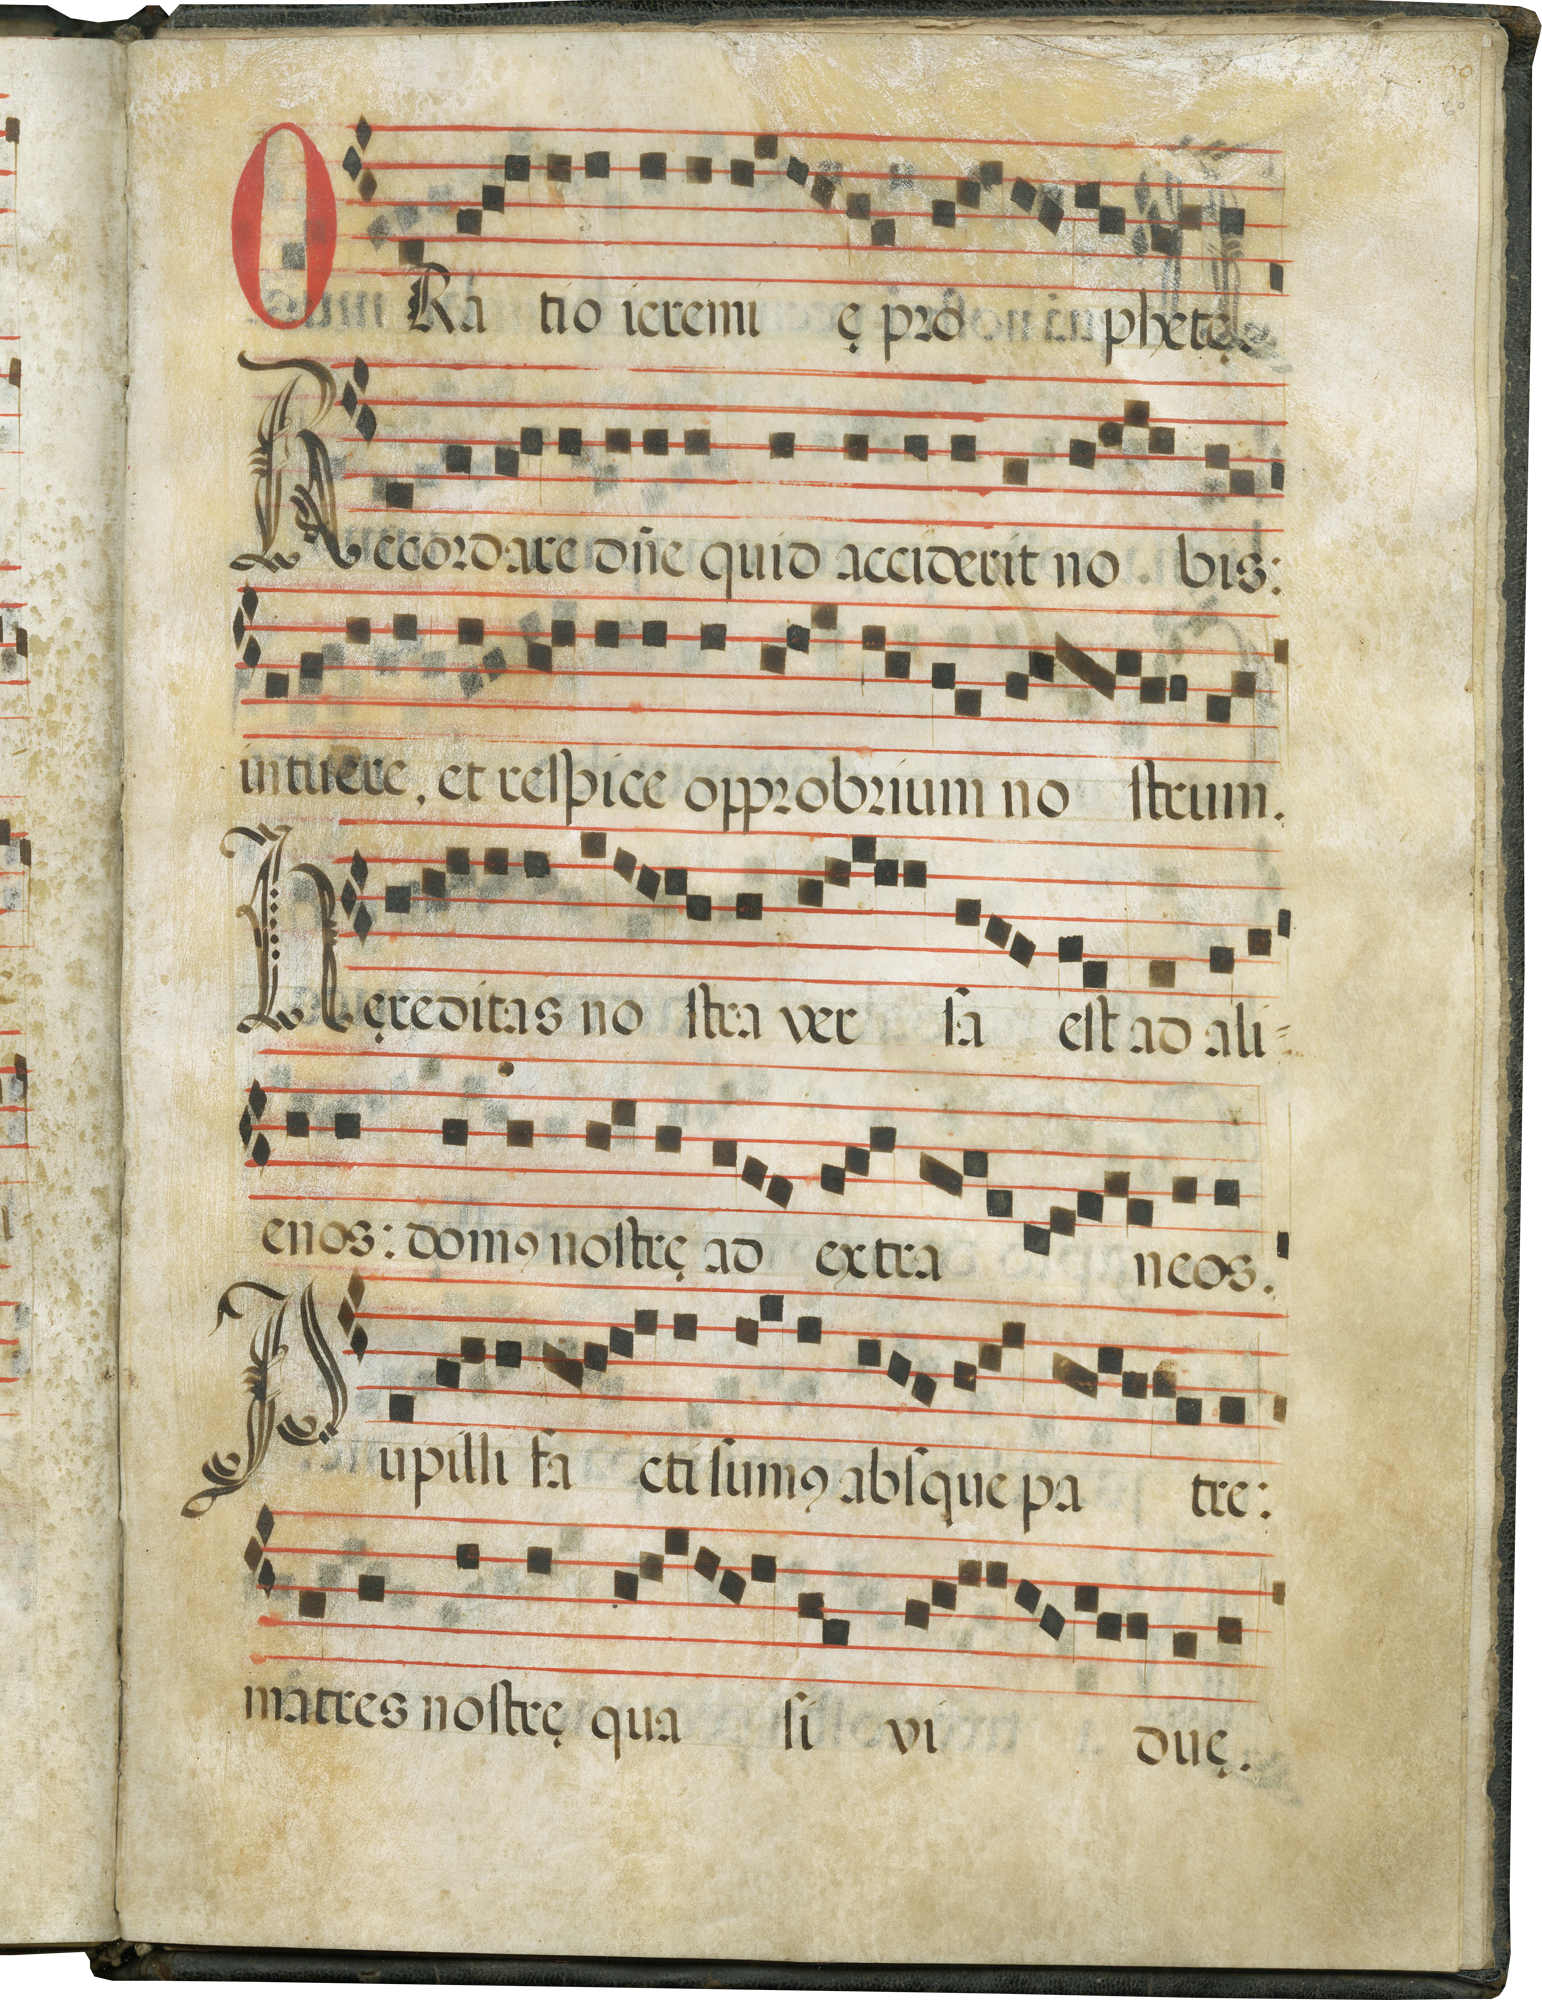 ORatio ieremię prophetę.
Recordare dñe quid acciderit nobis:
intuere, et respice opprobrium nostrum.
Hęreditas nostra versa est ad ali=
enos: domꝰ nostrę ad extraneos.
Pupilli facti sumꝰ absque patre:
matres nostrę quasi viduę.